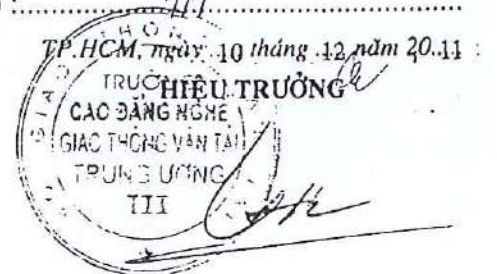 TP.HCM, ngày 10 tháng 12 năm 2011
HIỆU TRƯỞNG
TRƯỜNG
CAO ĐẲNG NGHỀ
GIAO THÔNG VẬN TẢI
TRUNG ƯƠNG
III